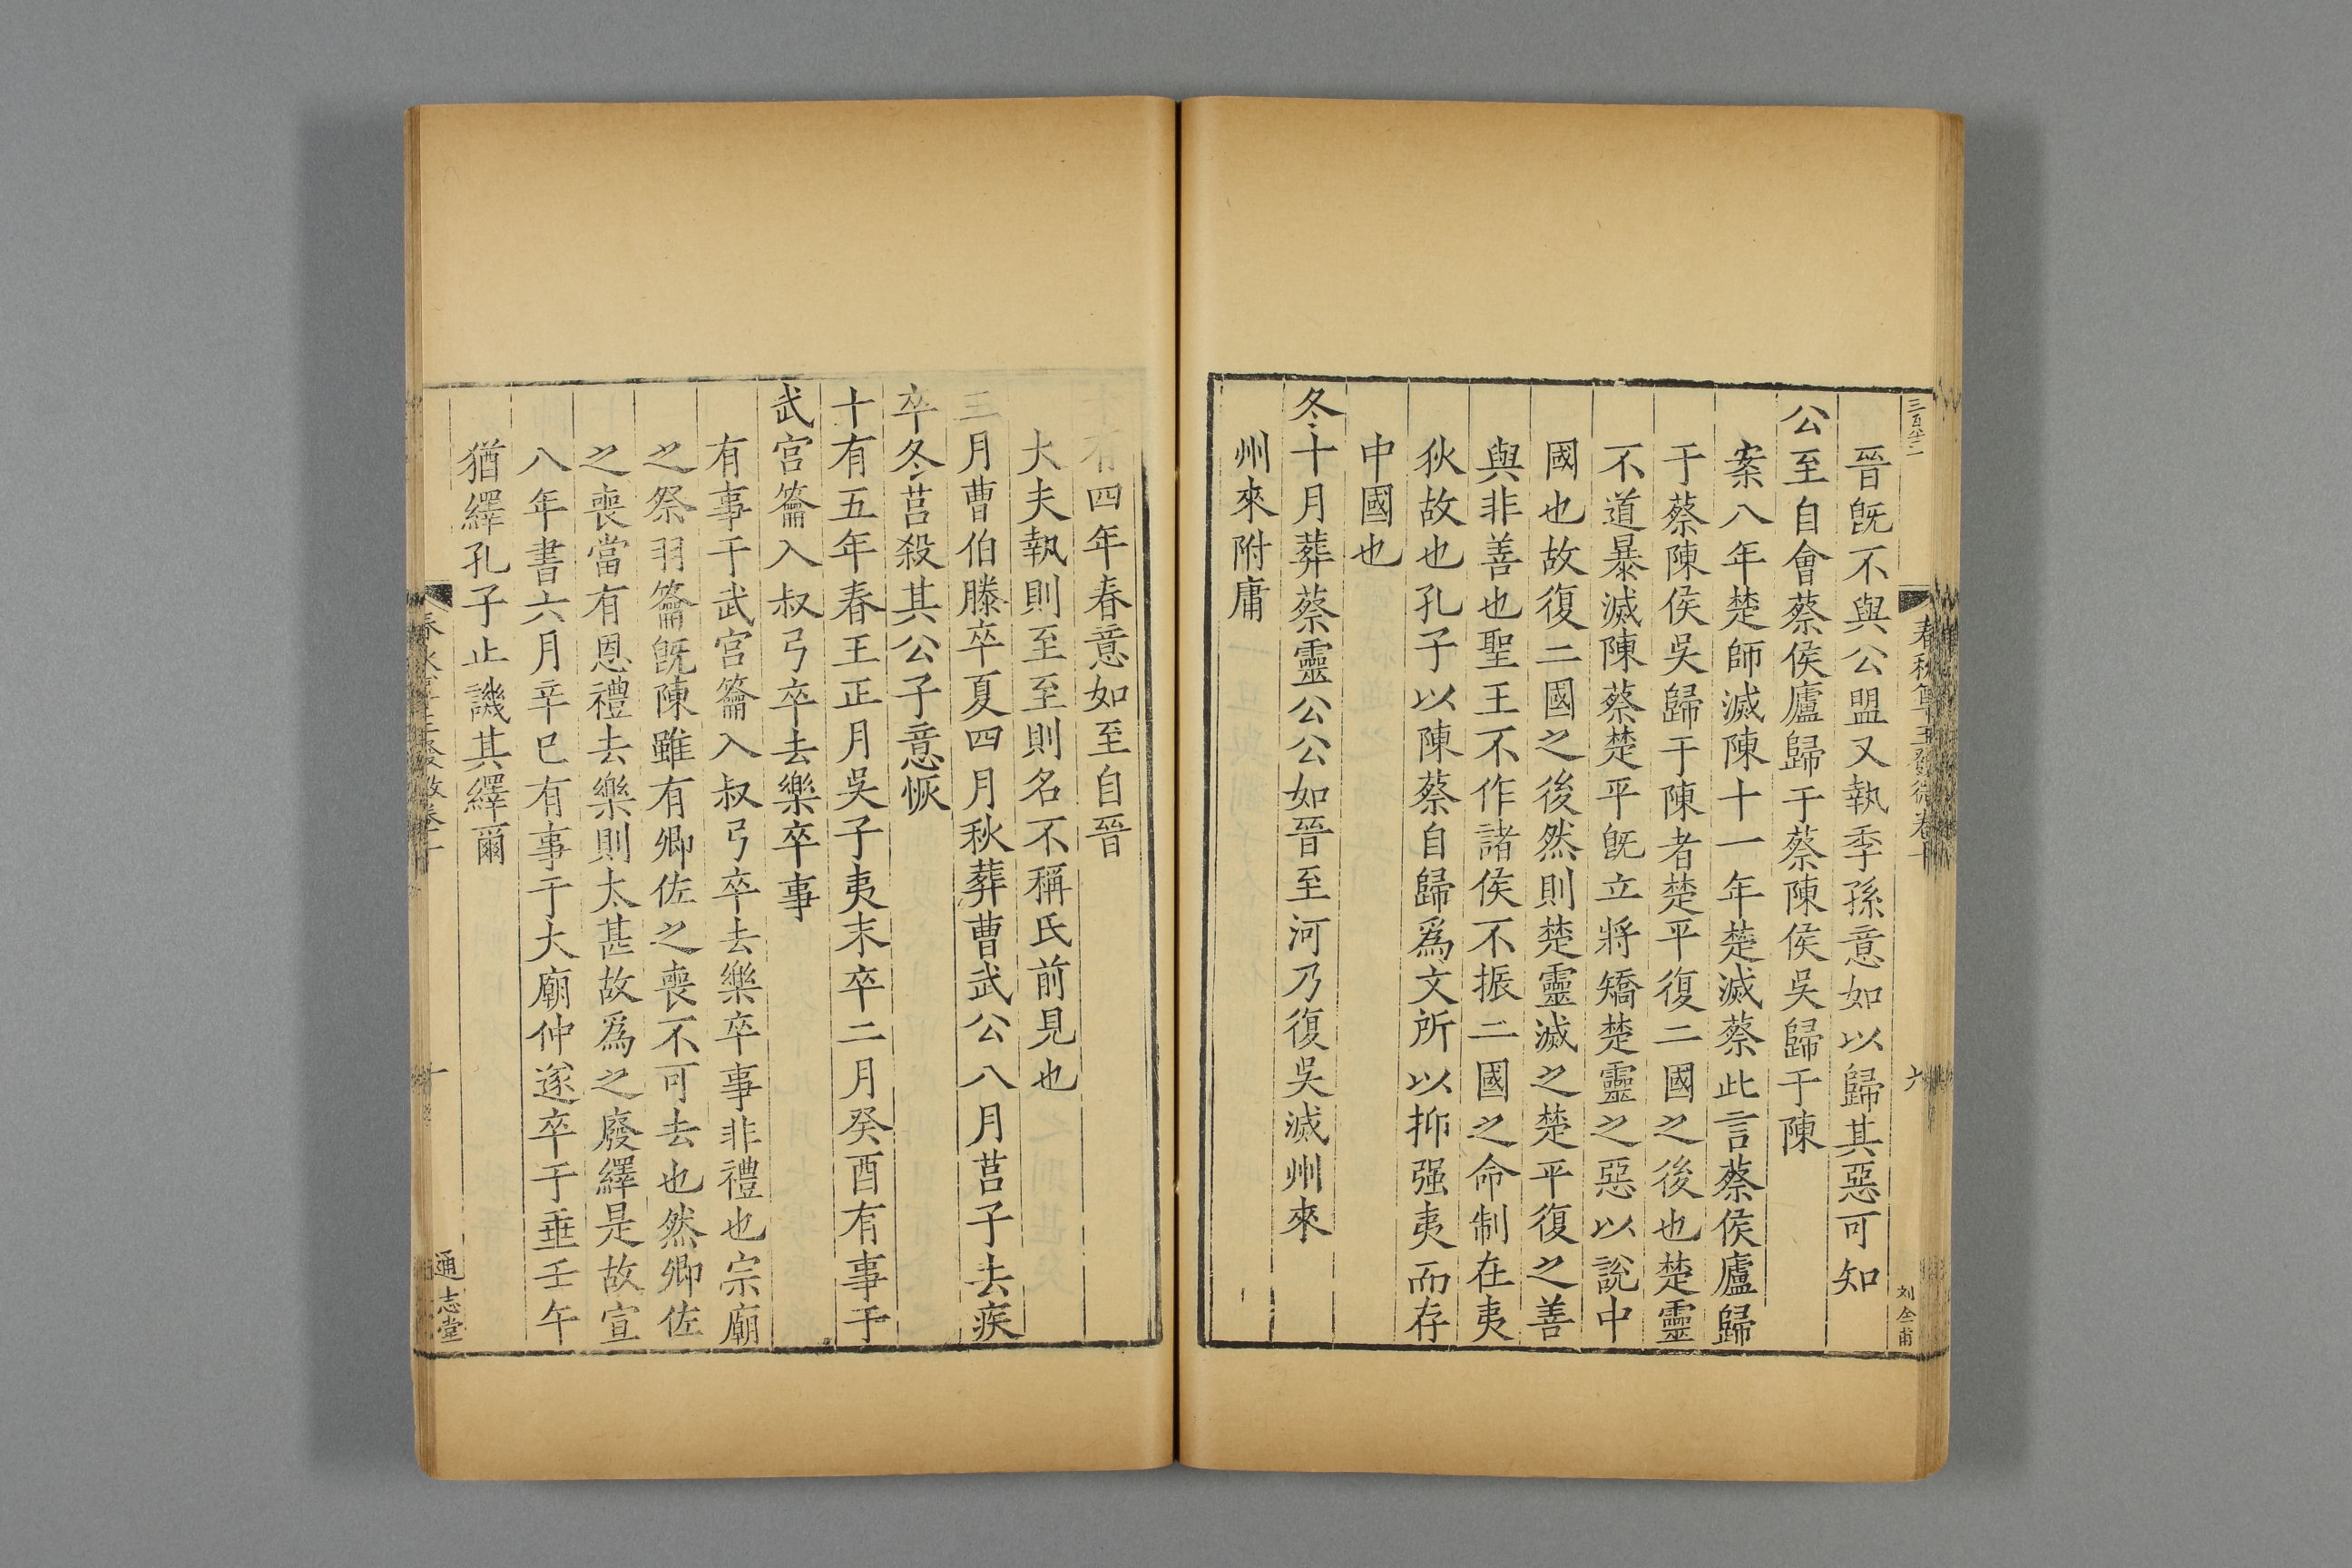 晉旣不與公盟又執季孫意如以歸其惡可知
公至自會蔡侯廬歸于蔡陳侯吳歸于陳
案八年楚師滅陳十一年楚滅蔡此言蔡侯廬歸
于蔡陳侯吳歸于陳者楚平復二國之後也楚靈
不道暴滅陳蔡楚平旣立將矯楚靈之惡以說中
國也故復二國之後然則楚靈滅之楚平復之善
與非善也聖王不作諸侯不振二國之命制在夷
狄故也孔子以陳蔡自歸爲文所以抑强夷而存
中國也
冬十月葬蔡靈公公如晉至河乃復吳滅州來
州來附庸
有四年春意如至自晉
大夫執則至至則名不稱氏前見也
三月曹伯滕卒夏四月秋葬曹武公八月莒子去疾
卒冬莒殺其公子意恢
十有五年春王正月吳子夷末卒二月癸酉有事于
武宮籥入叔弓卒去樂卒事
有事于武宮籥入叔弓卒去樂卒事非禮也宗廟
之祭羽籥旣陳雖有卿佐之喪不可去也然卿佐
之喪當有恩禮去樂則太甚故爲之廢繹是故宣
八年書六月辛巳有事于大廟仲遂卒于垂壬午
猶繹孔子止譏其繹爾
通志堂